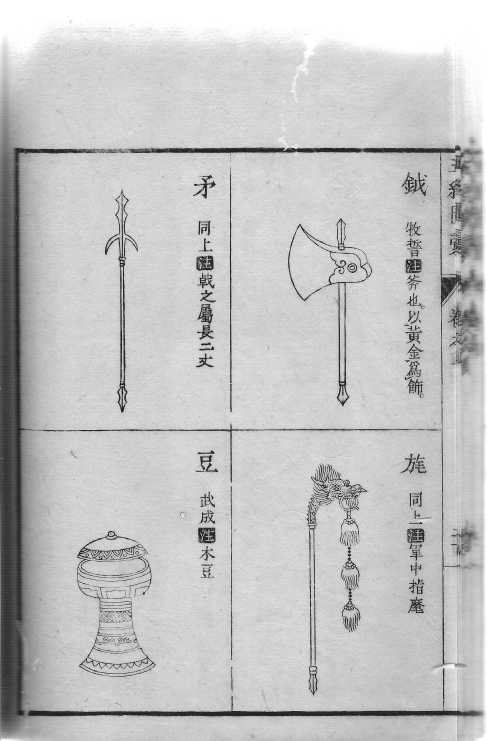 鉞
牧誓注斧也以黃金爲飾
旄
同上注軍中指麾
矛
同上注戟之屬長二丈
豆
武成注木豆